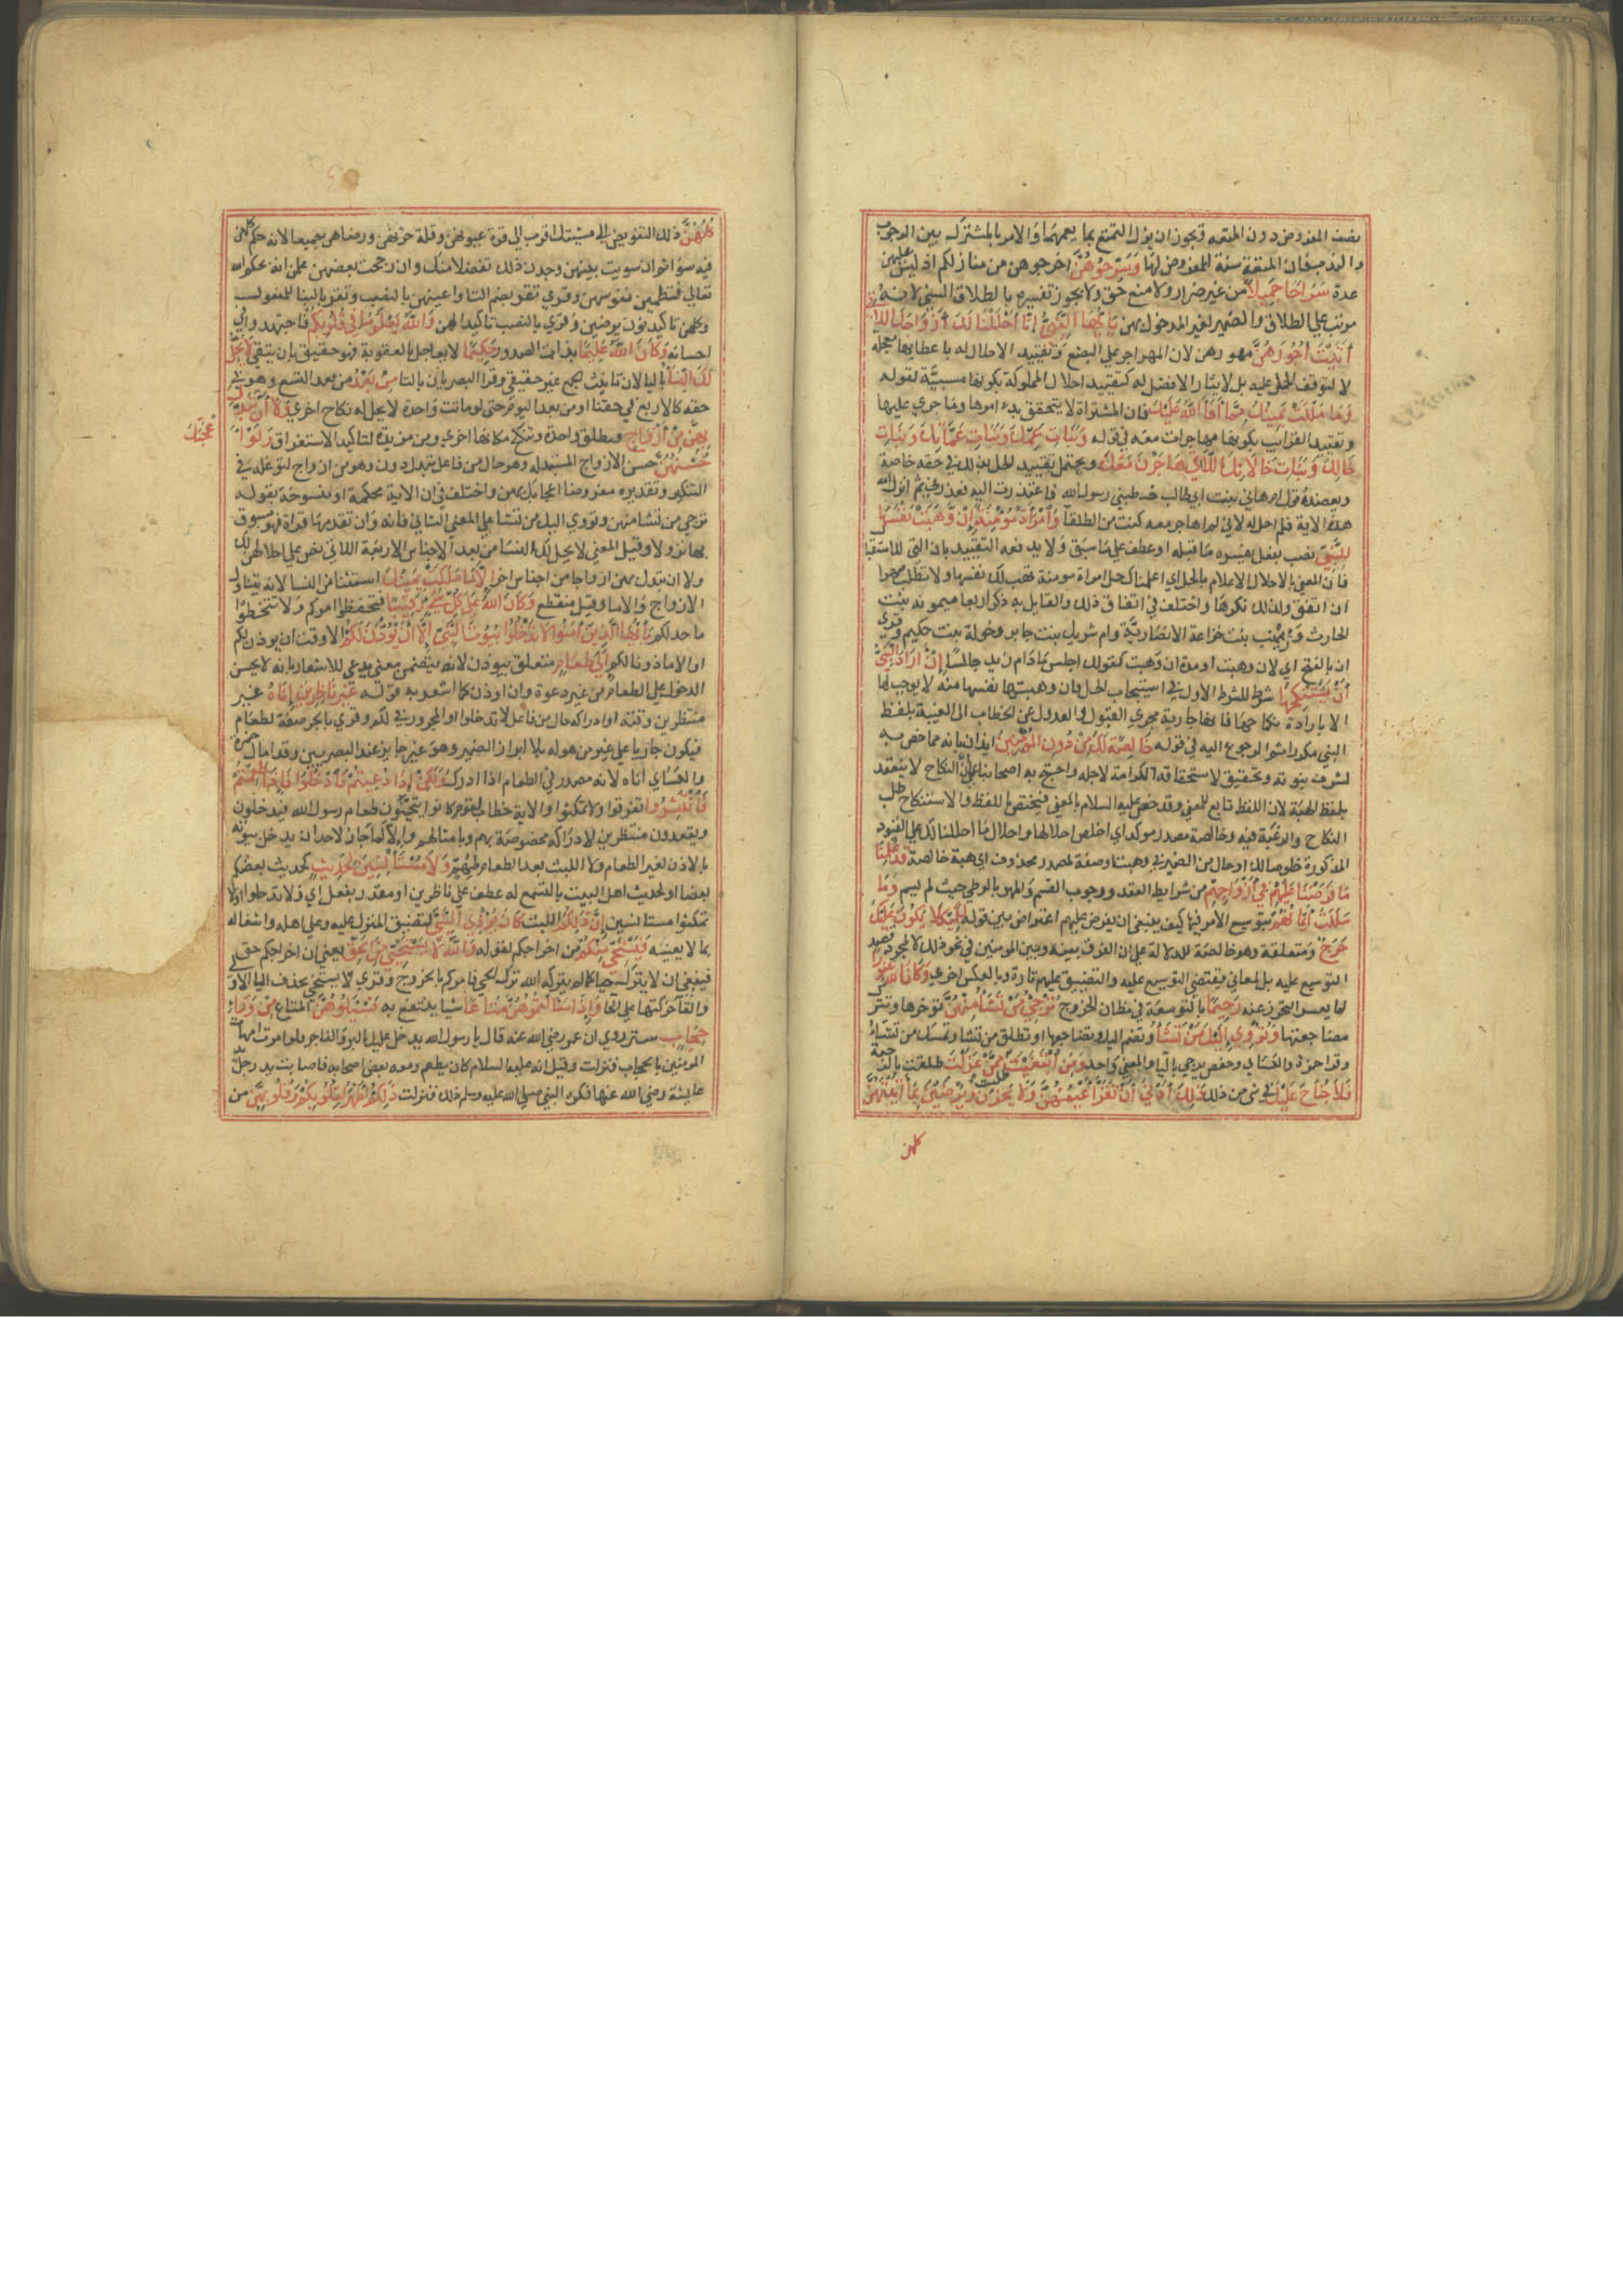 نصف المفروض دون المتعه ويجوز ان يؤل التمتع بما يعمهما والامر بالمشترك بين الوجوب
والندب فان المتعة سنة للمفروض لها وَسَرِّحُوهُنَّ اخرجوهن من منازلكم اذ ليس عليهن
عدة سَرَاحًا جَمِيلًا من غير ضرار ولا منع حق ولا يجوز تفسيره بالطلاق السني لانه
مرتب علي الطلاق والضمير لغير المدخول بهن يَا أَيُّهَا النَّبِيُّ إِنَّا أَحْلَلْنَا لَكَ أَزْوَاجَكَ اللَّاتِي
آتَيْتَ أُجُورَهُنَّ مهورهن لان المهر اجر علي البضع وتقييد الاحلال له باعطائها معجلة
لا لتوقف الحل عليه بل لايثار الافضل له كتقييد احلال المملوكة بكونها مسبيّة لقوله
وَمَا مَلَكَتْ يَمِينُكَ مِمَّا أَفَاءَ اللَّهُ عَلَيْكَ فان المشتراة لا يتحقق بدء امرها وما جري عليها
وتقييد القرائب بكونها مهاجرات معه في قوله وَبَنَاتِ عَمِّكَ وَبَنَاتِ عَمَّاتِكَ وَبَنَاتِ
خَالِكَ وَبَنَاتِ خَالَاتِكَ اللَّاتِي هَاجَرْنَ مَعَكَ ويحتمل تقييد الحل بذلك في حقه خاصة
ويعضدهُ قول ام هاني بنت ابي طالب خطبني رسول الله فاعتذرت اليه فعذرني ثم انزل الله
هذه الاية فلم احل له لاني لم اهاجر معه كنت من الطلقآ وَامْرَأَةً مُؤْمِنَةً إِنْ وَهَبَتْ نَفْسَهَا
لِلنَّبِيِّ نصب بفعل يفسره ما قبله او عطف علي ما سبق ولا يدفعه التقييد بان التي للاستقبال
فان المعني بالاحلال الاعلام بالحل اي اعلمناك حل امراة مومنة تهب لك نفسها ولا تطلب مهرا
ان اتفق ولذلك نكرها واختلف في اتفاق ذلك والقايل به ذكر اربعا ميمونه بنت
الحارث وزينب بنت خزاعة الانصاريّة وام شريك بنت جابر وخولة بنت حكيم وقري
ان بالفتح اي لان وهبت او مدة ان وهبت كقولك اجلس مادام زيد جالسًا إِنْ أَرَادَ النَّبِيُّ
أَنْ يَسْتَنْكِحَهَا شرط للشرط الاول في استيجاب الحل فان وهبتها نفسها منه لا يوجب لها
الا بارادة نكاحها فانها جارية مجري القبول والعدول عن الخطاب الى الغيبة بلفظ
النبي مكررا ثم الرجوع اليه في قوله خَالِصَةً لَكَ مِنْ دُونِ الْمُؤْمِنِينَ ايذان بانه مما خص به
لشرف نبوته وتحقيق لاستحقاقه الكرامة لاجله واحتج به اصحابنا علي انّ النكاح لا ينعقد
بلفظ الهبة لان اللفظ تابع للمعني وقد خص عليه السلام بالمعني فيختص باللفظ والاستنكاح طلب
النكاح والرغبة فيه وخالصة مصدر موكد اي اخلص احلالها او احلال ما احللنا لك علي القيود
المذكورة خلوصا لك او حال من الضمير في وهبت او صفة لمصدر محذوف اي هبة خالصة قَدْ عَلِمْنَا
مَا فَرَضْنَا عَلَيْهِمْ فِي أَزْوَاجِهِمْ من شرايط العقد ووجوب القسم والمهر بالوطي حيث لم يسم وَمَا
مَلَكَتْ أَيْمَانُهُمْ بتوسيع الامر فيها كيف ينبغي ان يفرض عليهم اعتراض بين قوله لِكَيْلَا يَكُونَ عَلَيْكَ
حَرَجٌ ومتعلقة وهو خالصة للدلالة علي ان الفرق بينه وبين المومنين في نحو ذلك لا لمجرد قصد
التوسيع عليه بل لمعاني يقتضي التوسيع عليه والتضييق عليهم تارة وبالعكس اخري وَكَانَ اللَّهُ غَفُورًا
لما يعسر التحرز عنه رَحِيمًا بالتوسعة في مظان الحرج تُرْجِي مَنْ تَشَاءُ مِنْهُنَّ توخرها وتترك
مضاجعتها وَتُؤْوِي إِلَيْكَ مَنْ تَشَاءُ وتضم اليك وتضاجعها او تطلق من تشا وتمسك من تشاءُ
وقرا حمزة والكسائي وحفص ترجي باليا والمعني واحد وَمَنِ ابْتَغَيْتَ طلبت مِمَّنْ عَزَلْتَ طلقت بالرجعة
فَلَا جُنَاحَ عَلَيْكَ في شي من ذلك ذَلِكَ أَدْنَى أَنْ تَقَرَّ أَعْيُنُهُنَّ وَلَا يَحْزَنَّ وَيَرْضَيْنَ بِمَا آتَيْتَهُنَّ
كلهن
كُلُّهُنَّ ذلك التفويض الى مشيئتك اقرب الي قرة عيونهن وقلة حزنهن ورضاهن جميعا لانه حكم كلهن
فيه سواء ثم ان سويت بينهن وجدن ذلك تفضلا منك وان رجحت بعضهن علمن انه بحكم الله
تعالي فتطمين نفوسهن وقري تقر بضم التا واعينهن بالنصب وتقر بالبنا للمفعول
وكلهن تاكيد نون يرضين وقري بالنصب تاكيدا لهن وَاللَّهُ يَعْلَمُ مَا فِي قُلُوبِكُمْ فاجتهدوا في
احسانه وَكَانَ اللَّهُ عَلِيمًا بذات الصدور حَلِيمًا لا يعاجل بالعقوبة فهو حقيق بان يتقي لَا يَحِلُّ
لَكَ النِّسَاءُ باليا لان تانيث الجمع غير حقيقي وقرا البصريان بالتا مِنْ بَعْدُ من بعد التسع وهو في
حقه كالاربع في حقنا او من بعد اليوم حتي لو ماتت واحدة لا يحل له نكاح اخري وَلَا أَنْ تَبَدَّلَ
بِهِنَّ مِنْ أَزْوَاجٍ فتطلق واحدة وتنكح مكانها اخري ومن مزيدة لتاكيد الاستغراق وَلَوْ أَعْجَبَكَ
حُسْنُهُنَّ حسن الازواج المستبدلة وهو حال من فاعل تبدل دون وهو من ازواج لتوغله في
التنكير وتقديره مفروضا اعجابك بهن واختلف في ان الاية محكمة او منسوخة بقوله
ترجي من تشا منهن وتووي اليك من تشا علي المعني الثاني فانه وان تقدمها قراة فهو مسبوق
بها نزولا وقيل المعني لا يحل لك النسا من بعد الاجناس الاربعة اللاتي نص علي احلالهن لك
ولا ان تبدل بهن ازواجا من اجناس اخر إِلَّا مَا مَلَكَتْ يَمِينُكَ استثنا من النسا لانه يتناول
الازواج والاما وقيل منقطع وَكَانَ اللَّهُ عَلَى كُلِّ شَيْءٍ رَقِيبًا فتحفظوا امركم ولا تتخطوا
ما حد لكم يَا أَيُّهَا الَّذِينَ آمَنُوا لَا تَدْخُلُوا بُيُوتَ النَّبِيِّ إِلَّا أَنْ يُؤْذَنَ لَكُمْ الا وقت ان يوذن لكم
او الا ماذونا لكم إِلَى طَعَامٍ متعلق بيوذن لانه يتضمن معني يدعي للاشعار بانه لا يحسن
الدخول علي الطعام من غير دعوة وان اوذن كما اشعر به قوله غَيْرَ نَاظِرِينَ إِنَاهُ غير
منتظرين وقته او ادراكه حال من فاعل لا تدخلوا او المجرور في لكم وقري بالجر صفة لطعام
فيكون جاريا علي غير من هو له بلا ابراز الضمير وهو غير جايز عند البصريين وقد امال حمزة
والكسائي اناه لانه مصدر اني الطعام اذا ادرك وَلَكِنْ إِذَا دُعِيتُمْ فَادْخُلُوا فَإِذَا طَعِمْتُمْ
فَانْتَشِرُوا تفرقوا ولا تمكثوا والاية خطاب لقوم كانوا يتحيّنون طعام رسول الله فيدخلون
ويقعدون منتظرين لادراكه مخصوصة بهم وبامثالهم والا لما جاز لاحد ان يدخل بيوته
بالاذن لغير الطعام ولا اللبث بعد الطعام لمهم وَلَا مُسْتَأْنِسِينَ لِحَدِيثٍ لحديث بعضكم
بعضا او لحديث اهل البيت بالتسمع له عطف علي ناظرين او مقدر بفعل اي ولا تدخلوا ولا
تمكثوا مستانسين إِنَّ ذَلِكُمْ اللبث كَانَ يُؤْذِي النَّبِيَّ لتضييق المنزل عليه وعلي اهله واشغاله
بما لا يعنيه فَيَسْتَحْيِي مِنْكُمْ من اخراجكم لقوله وَاللَّهُ لَا يَسْتَحْيِي مِنَ الْحَقِّ يعني ان اخراجكم حق
فينبغي ان لا يترك حيا كما لم يتركه الله ترك الحيي فامركم بالخروج وقري لا يستحي بحذف اليا الاولي
والقآ حركتها علي الحا وَإِذَا سَأَلْتُمُوهُنَّ مَتَاعًا شيا ينتفع به فَاسْأَلُوهُنَّ المتاع مِنْ وَرَاءِ
حِجَابٍ ستر روي ان عمر رضي الله عنه قال يا رسول الله يدخل عليك البر والفاجر فلو امرت امهات
المومنين بالحجاب فنزلت وقيل انه عليه السلام كان يطعم ومعه بعض اصحابه فاصابت يد رجل يد
عايشة رضي الله عنها فكره النبي صلي الله عليه وسلم ذلك فنزلت ذَلِكُمْ أَطْهَرُ لِقُلُوبِكُمْ وَقُلُوبِهِنَّ من
عجبك